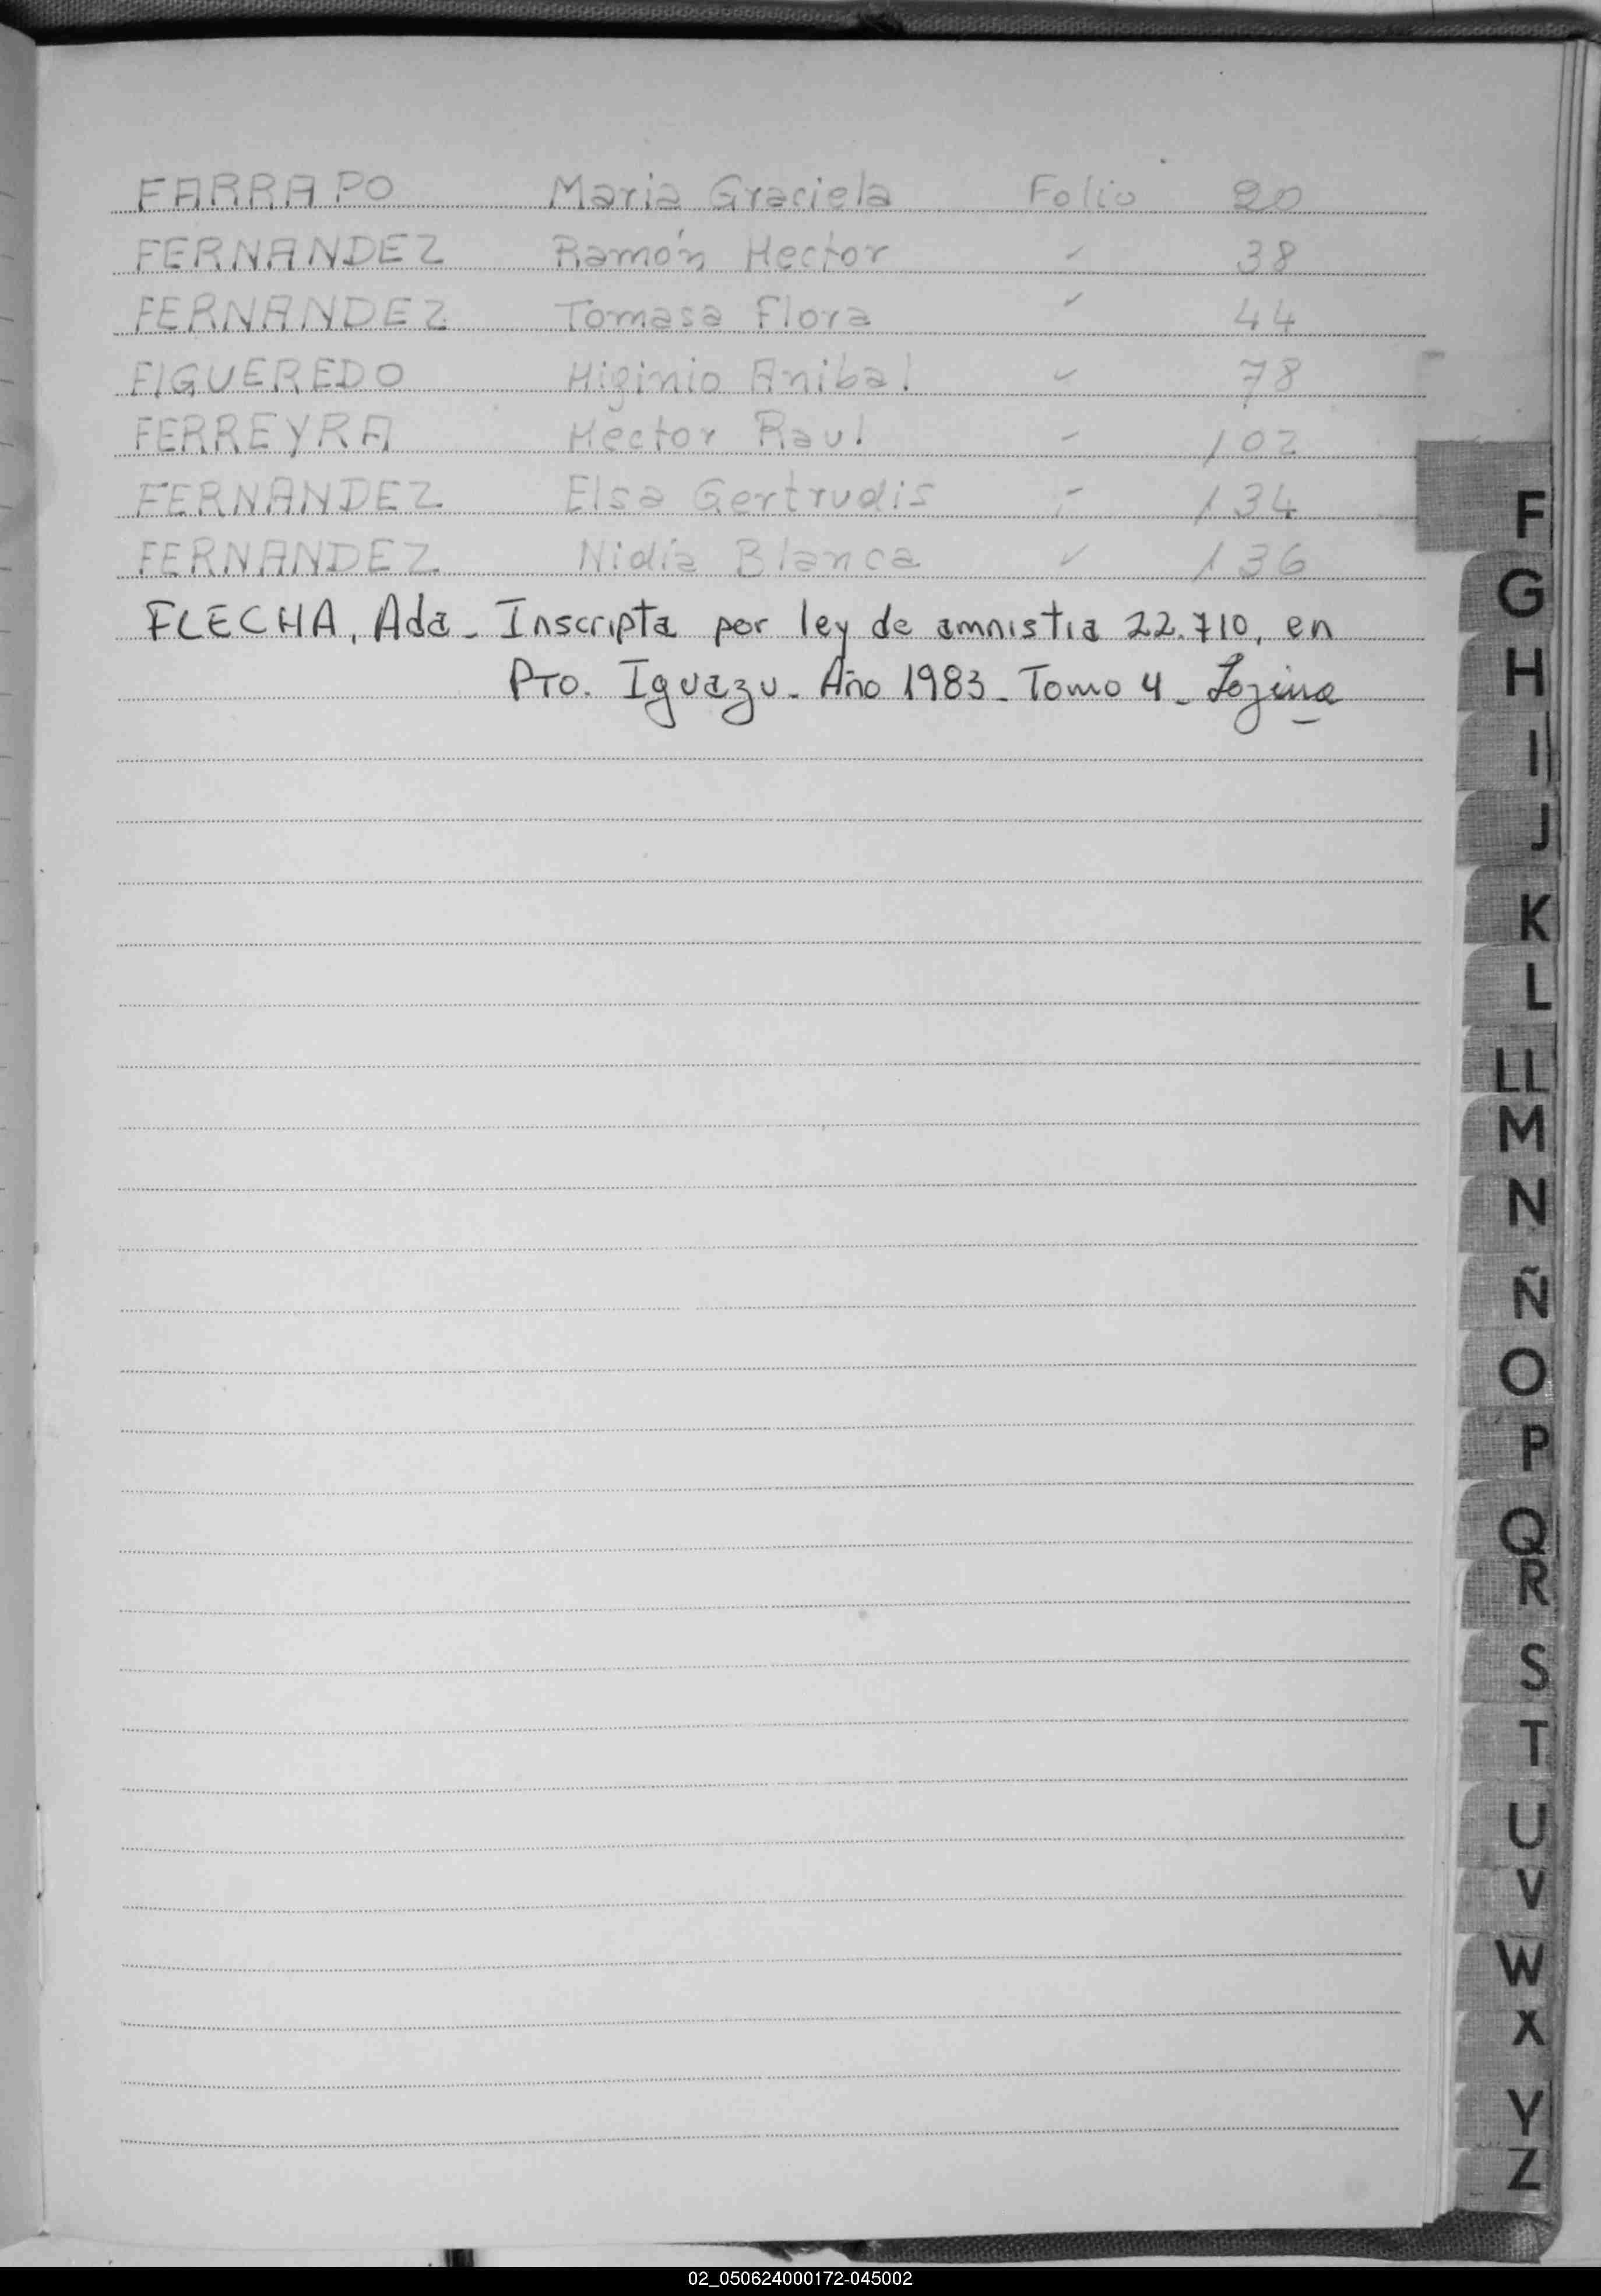 FARRAPO Maria Graciela Folio 20
FERNANDEZ Ramón Hector " 38
FERNANDEZ Tomasa Flora " 44
FIGUEREDO Higinio Anibal " 78
FERREYRA Hector Raul " 102
FERNANDEZ Elsa Gertrudis " 134
FERNANDEZ Nidia Blanca " 136
FLECHA, Ada - Inscripta por ley de amnistia 22.710, en
Pto. Iguazu - Año 1983 - Tomo 4 -
F
G
H
I
J
K
L
LL
M
N
Ñ
O
P
Q
R
S
T
U
V
W
X
Y
Z
02_050624000172-045002